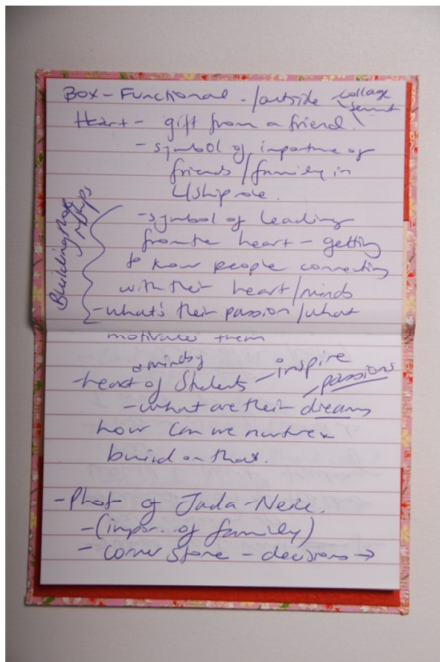 Box - Functional - /outside collage
Heart - gift from a friend.
- symbol of importance of
friends/family in
L'ship role.
Building
- symbol of leading
from the heart - getting
to know people connecting
with their heart/minds
- what's their passion/what
motivates them
& minds
- heart of students - inspire
passions
- what are their dreams
how can we nurture
build on that.
- Photo of Jada-
- (impor. of family)
- corner stone - decisions →